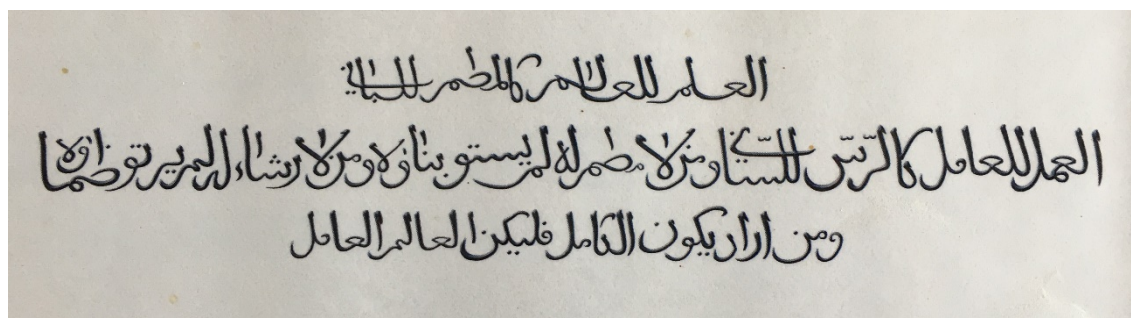 العلم للعالم كالمطمر للباني
العمل للعامل للساني ومن لا مطمر له لم يستو بناؤه ومن لا رشاء له لم يرتو ظماؤه
ومن اراد يكون الكامل فليكن العالم العامل